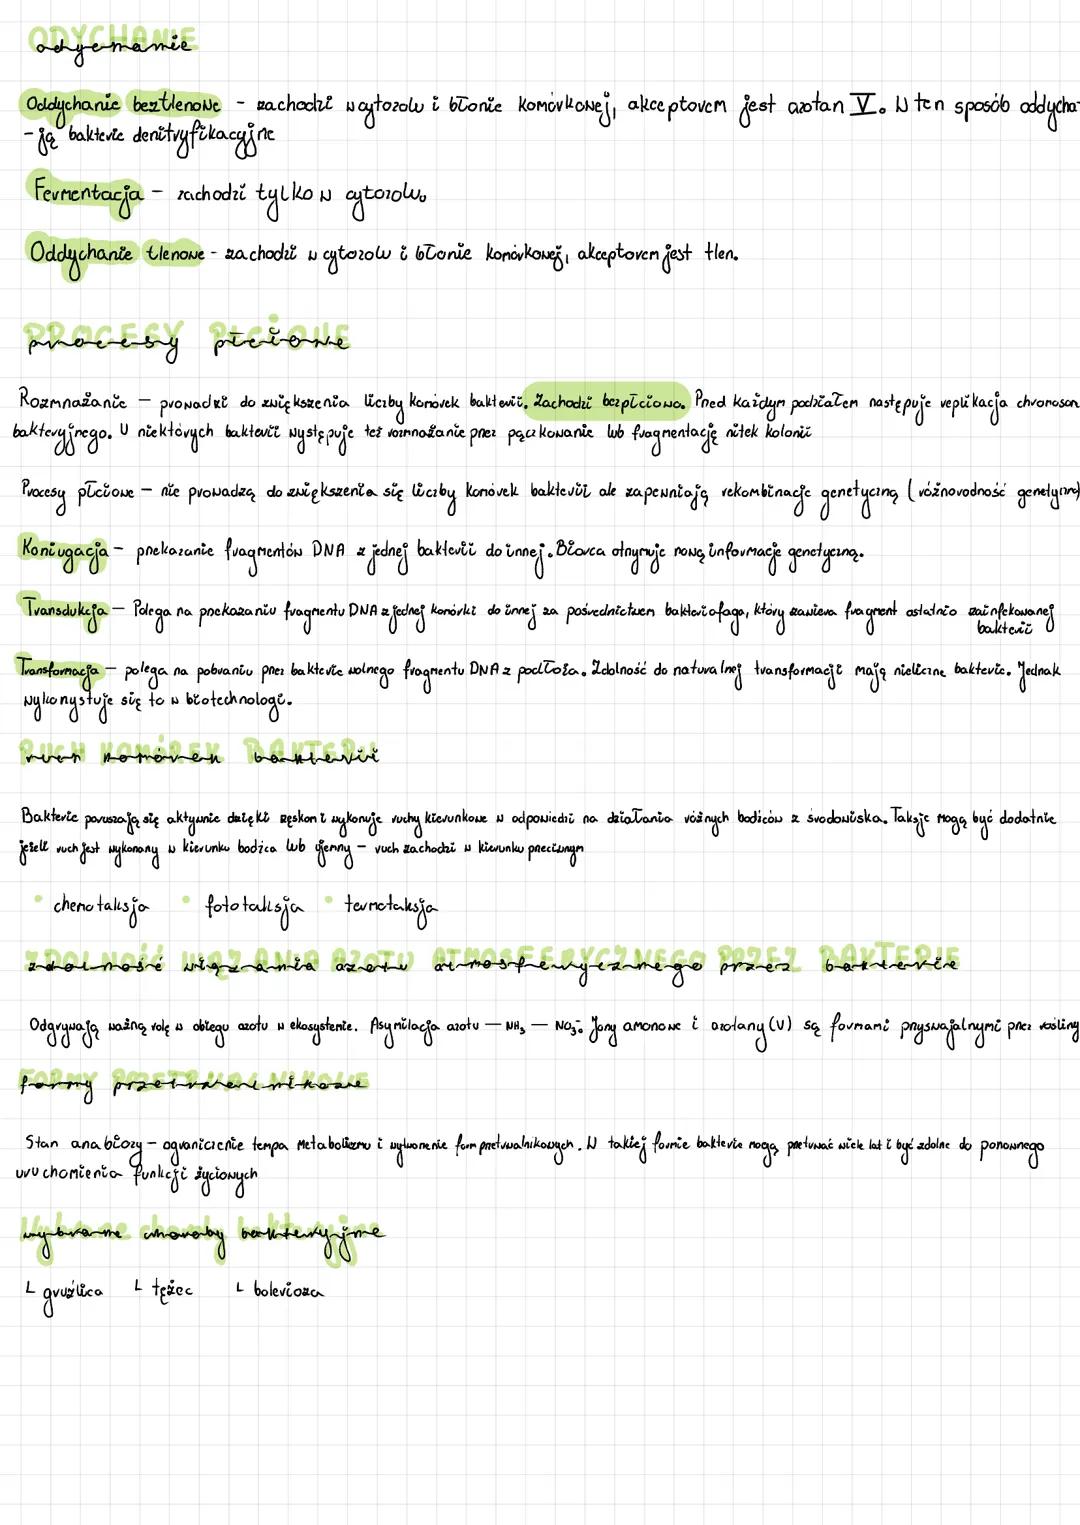 ODYCHANIE
Oddychanie beztlenowe - zachodzi w cytozolu i błonie komórkowej, akceptorem jest azotan V. W ten sposób oddycha-
-ją bakterie denitryfikacyjne
Fermentacja - zachodzi tylko w cytozolu.
Oddychanie tlenowe - zachodzi w cytozolu i błonie komórkowej, akceptorem jest tlen.
PROCESY PŁCIOWE
Rozmnażanie - prowadzi do zwiększenia liczby komórek bakterii. Zachodzi bezpłciowo. Przed każdym podziałem następuje replikacja chromosom
bakteryjnego. U niektórych bakterii występuje też rozmnażanie przez pączkowanie lub fragmentację nitek kolonii
Procesy płciowe - nie prowadzą do zwiększenia się liczby komórek bakterii ale zapewniają rekombinacje genetyczną (różnorodność genetyczną)
Koniugacja - przekazanie fragmentów DNA z jednej bakterii do innej. Biorca otrzymuje nową informacje genetyczną.
Transdukcja - Polega na przekazaniu fragmentu DNA z jednej komórki do innej za pośrednictwem bakteriofaga, który zawiera fragment ostatnio zainfekowanej
bakterii
Transformacja - polega na pobraniu przez bakterie wolnego fragmentu DNA z podłoża. Zdolność do naturalnej transformacji mają nieliczne bakterie. Jednak
wykorzystuje się to w biotechnologi.
RUCH KOMÓREK BAKTERII
Bakterie poruszają się aktywnie dzięki rzęskom i wykonuje ruchy kierunkowe w odpowiedzi na działania różnych bodźców z środowiska. Taksje mogą być dodatnie
jeżeli ruch jest wykonany w kierunku bodźca lub ujemny - ruch zachodzi w kierunku przeciwnym
• chemotaksja • fototaksja • termotaksja
ZDOLNOŚĆ WIĄZANIA AZOTU ATMOSFERYCZNEGO PRZEZ BAKTERIE
Odgrywają ważną rolę w obiegu azotu w ekosystemie. Asymilacja azotu - NH₃ - NO₃⁻. Jony amonowe i azotany (V) są formami przyswajalnymi przez rośliny
FORMY PRZETRWALNIKOWE
Stan anabiozy - ograniczenie tempa metabolizmu i wytworzenie form przetrwalnikowych. W takiej formie bakterie mogą przetrwać wiele lat i być zdolne do ponownego
uruchomienia funkcji życiowych
Wybrane choroby bakteryjne
└ gruźlica └ tężec └ borelioza